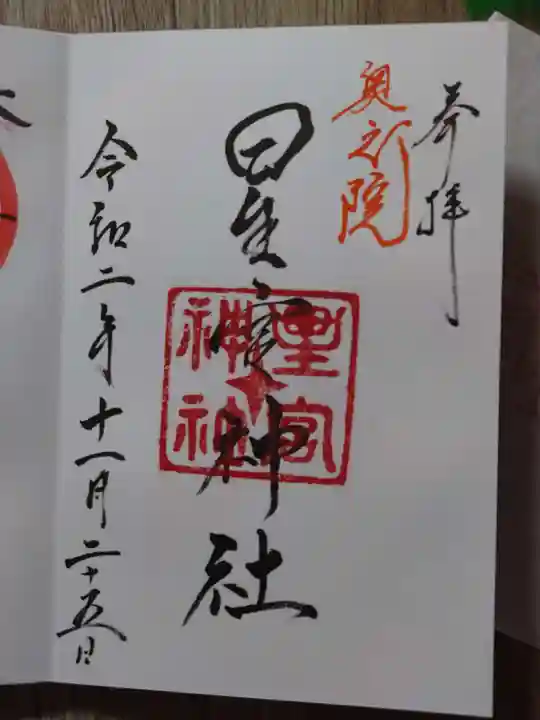 奉拝
奥之院
星宮神社
星宮
神社
令和二年十一月二十五日